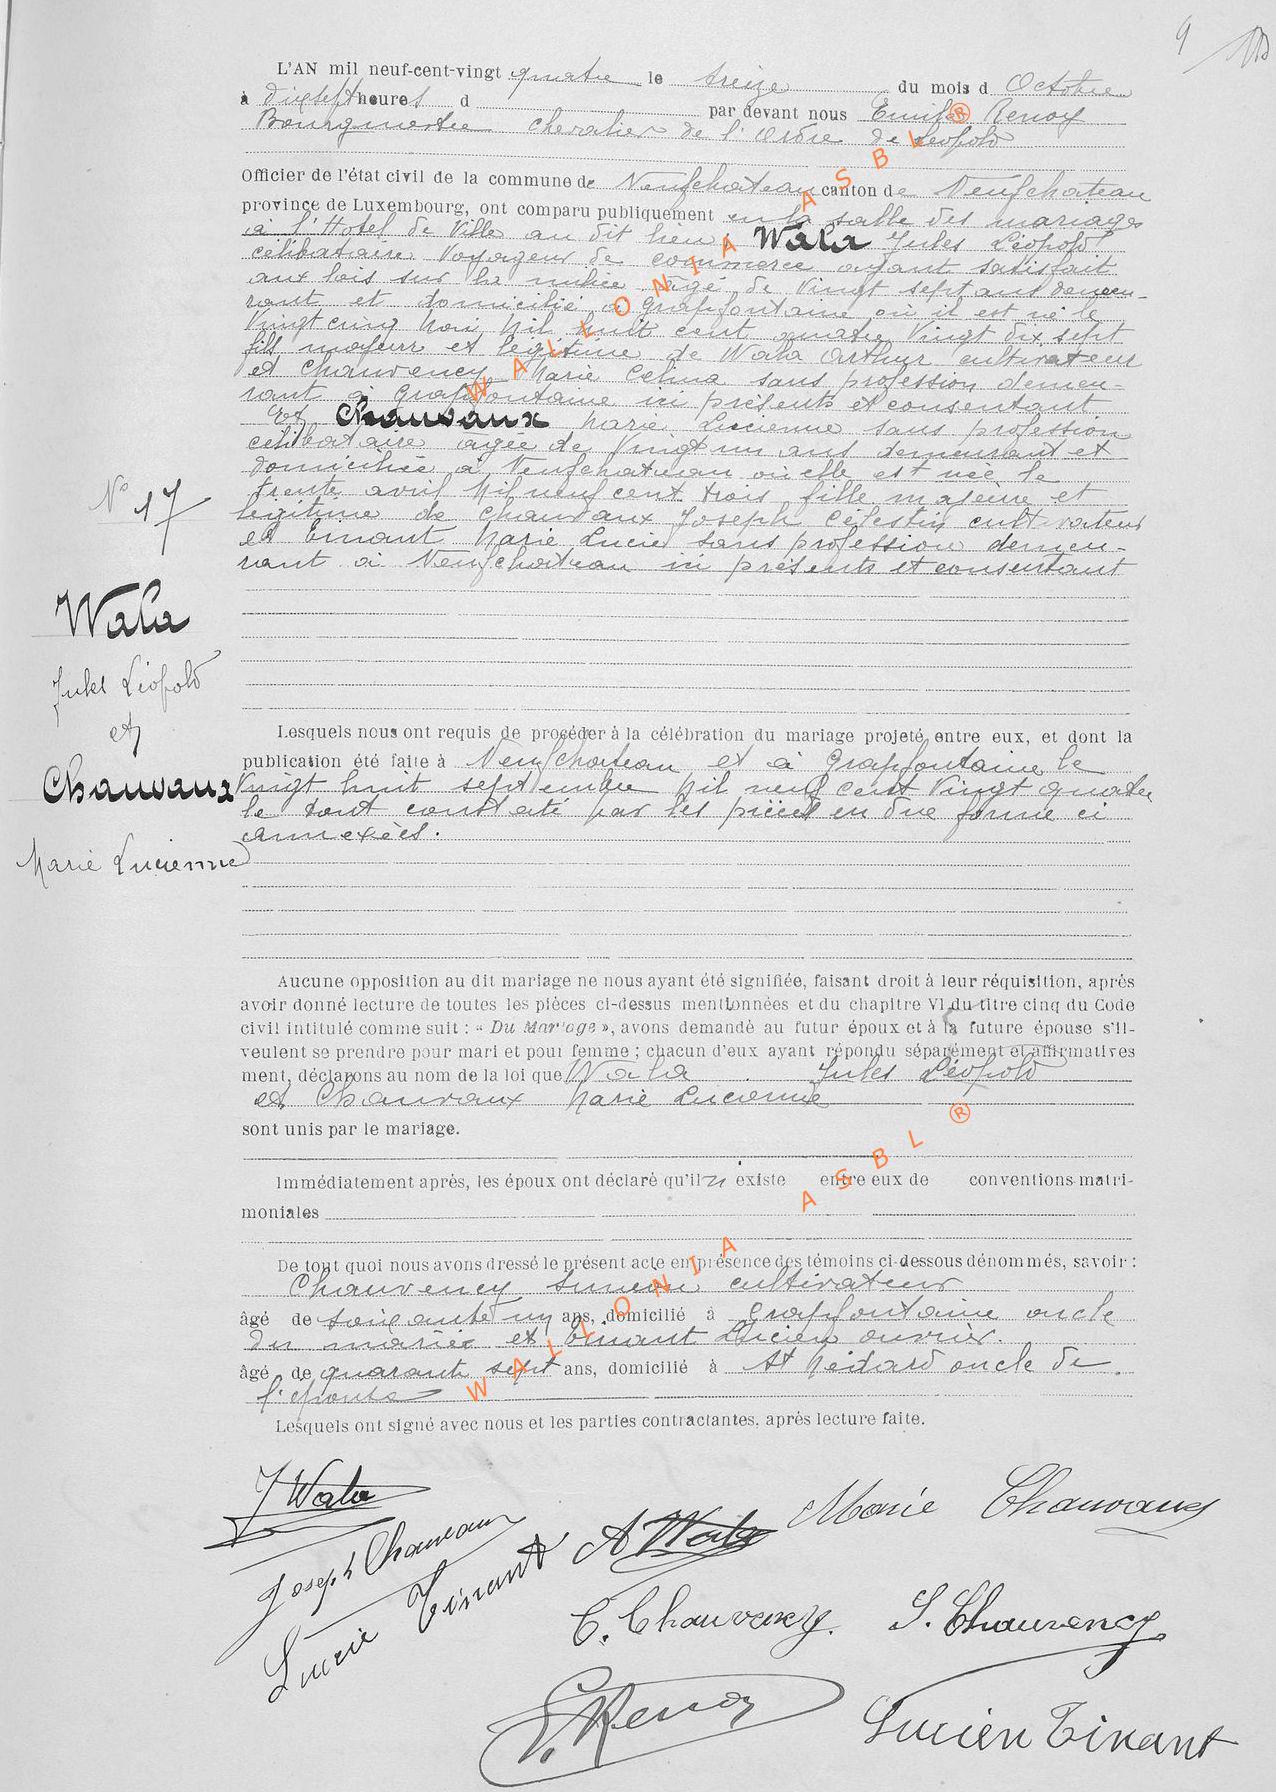 9
L'AN mil neuf-cent-vingt quatre le treize du mois d Octobre
à dixsept heures d par devant nous Emile Renoy
Bourgmestre chevalier de l'Ordre de Léopold
Officier de l'état civil de la commune de Neufchateau canton de Neufchateau
province de Luxembourg, ont comparu publiquement en la salle des mariages
à l'Hotel de Ville au dit lieu, Wala Jules Léopold
célibataire Voyageur de commerce ayant satisfait
aux lois sur la milice âgé de Vingt sept ans demeu-
rant et domicilié à Grapfontaine où il est né le
Vingt cinq Mai Mil huit cent quatre Vingt dix sept
fils majeur et légitime de Wala Arthur cultivateur
et Chauvency Marie Celina sans profession demeu-
rant à Grapfontaine ici présents et consentant
Et Chauvaux Marie Lucienne sans profession
celibataire agée de Vingt un ans demeurant et
domiciliée à Neufchateau où elle est née le
trente avril Mil neuf cent trois fille majeure et
légitime de Chauvaux Joseph Célestin cultivateur
et Tinant Marie Lucie sans profession demeu-
rant à Neufchateau ici présents et consentant
N° 17
Wala
Jules Léopold
et
Chauvaux
Marie Lucienne
Lesquels nous ont requis de procéder à la célébration du mariage projeté entre eux, et dont la
publication été faite à Neufchateau et à Grapfontaine le
Vingt huit septembre Mil neuf cent Vingt quatre
le tout constaté par les pièces en due forme ci
annexées.
Aucune opposition au dit mariage ne nous ayant été signifiée, faisant droit à leur réquisition, après
avoir donné lecture de toutes les pièces ci-dessus mentionnées et du chapitre VI du titre cinq du Code
civil intitulé comme suit : « Du Mariage », avons demandé au futur époux et à la future épouse s'il-
veulent se prendre pour mari et pour femme ; chacun d'eux ayant répondu séparément et affirmatives
ment, déclarons au nom de la loi que Wala Jules Léopold
et Chauvaux Marie Lucienne
sont unis par le mariage.
Immédiatement après, les époux ont déclaré qu'il n'existe entre eux de conventions matri-
moniales
De tout quoi nous avons dressé le présent acte en présence des témoins ci-dessous dénommés, savoir :
Chauvency Simeon cultivateur
âgé de soixante un ans, domicilié à Grapfontaine oncle
du mariée et Tinant Lucien ouvrier.
âgé de quarante sept ans, domicilié à St Médard oncle de
l'épouse
Lesquels ont signé avec nous et les parties contractantes, après lecture faite.
J Wala
Marie Chauvaux
Joseph Chauvaux
A Wala
Lucie Tinant
C. Chauvency.
S. Chauvency
E. Renoy
Lucien Tinant
WALLONIA ASBL ®
WALLONIA ASBL ®